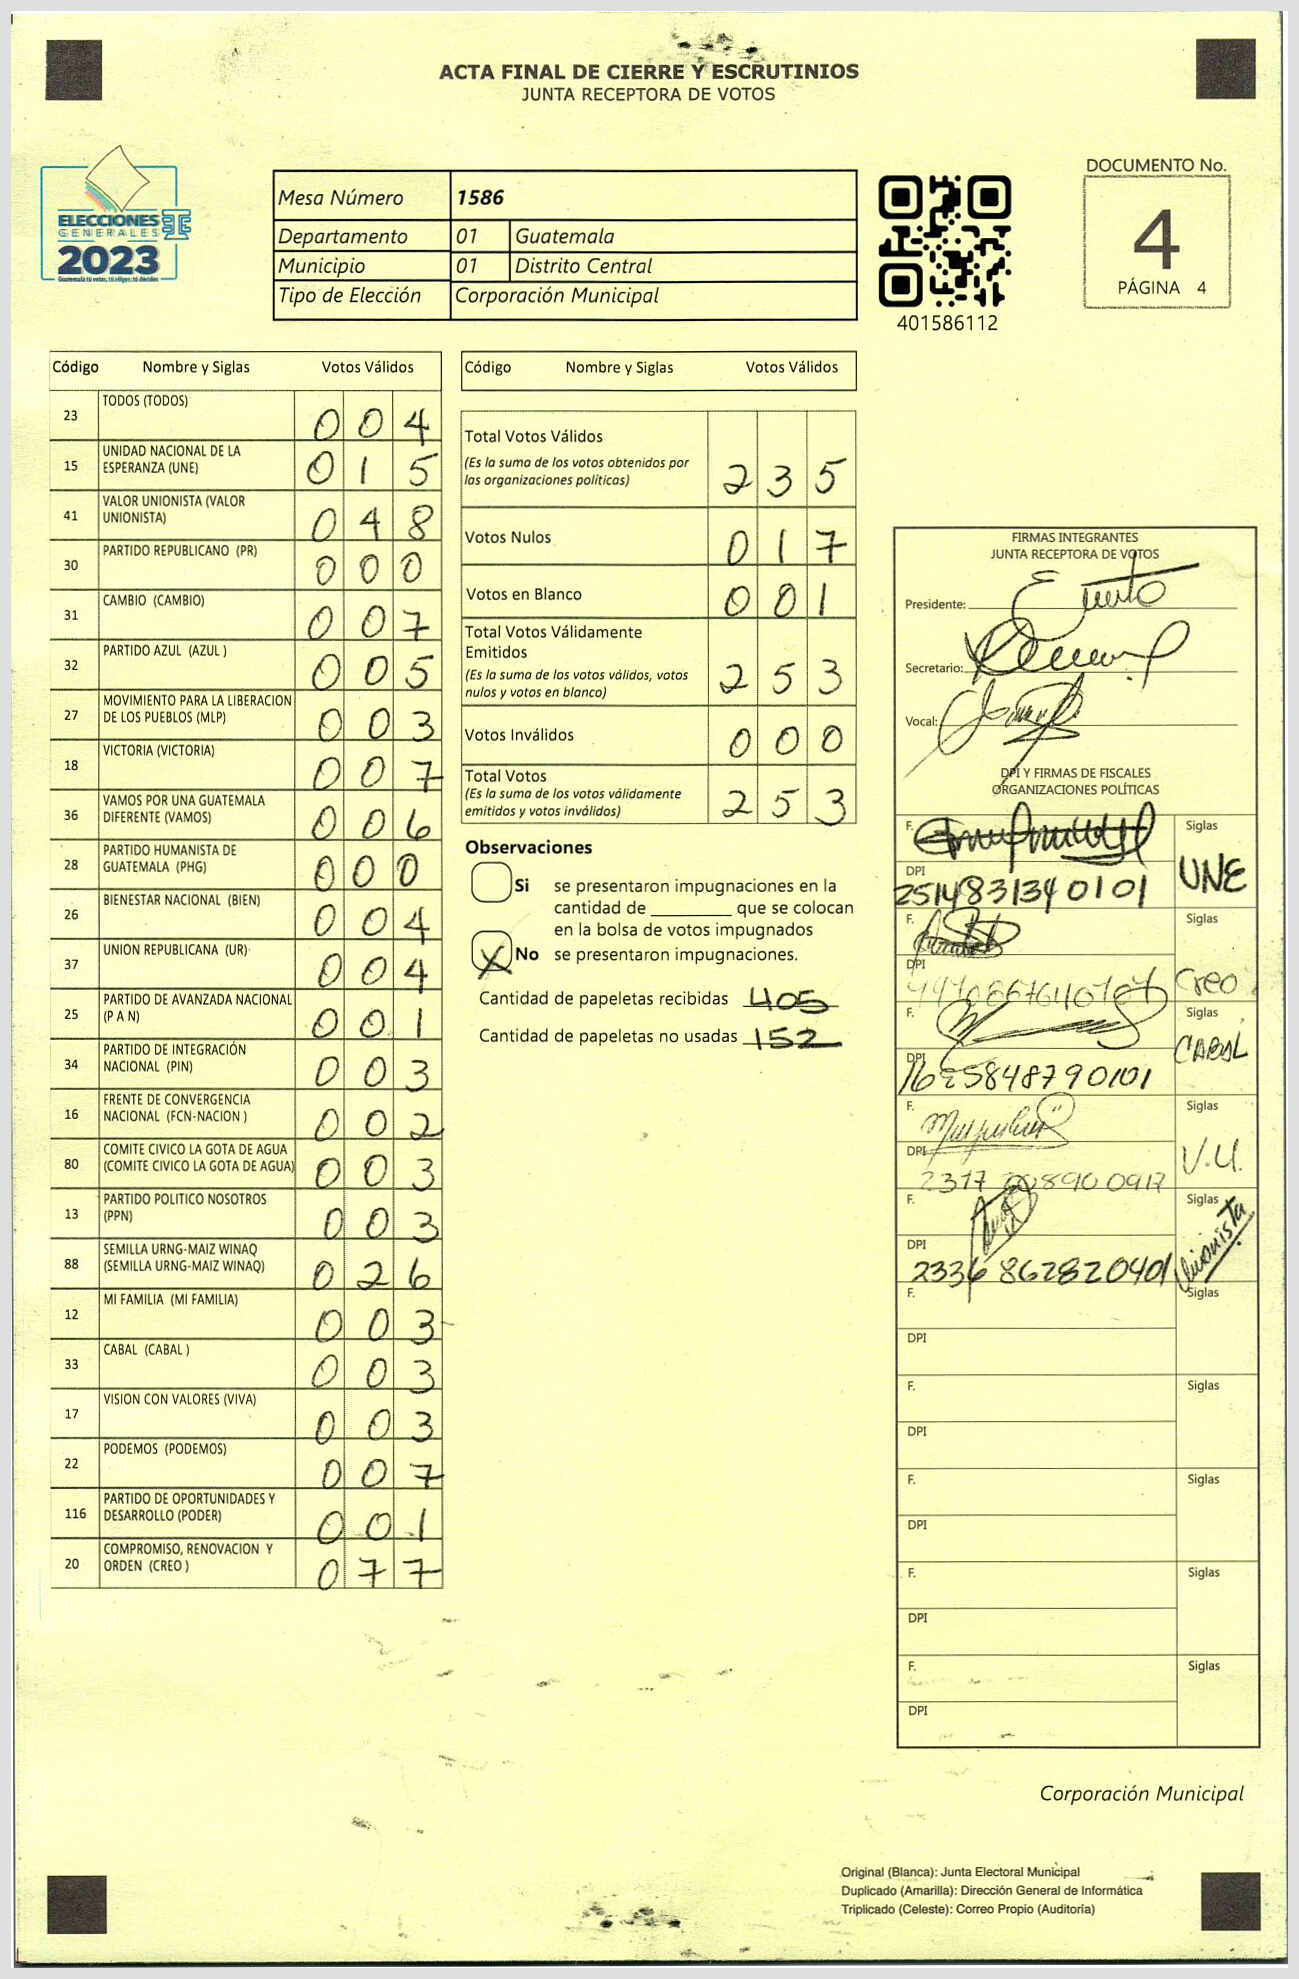 ACTA FINAL DE CIERRE Y ESCRUTINIOS
JUNTA RECEPTORA DE VOTOS
ELECCIONES
GENERALES
2023
Mesa Número 1586
Departamento 01 Guatemala
Municipio 01 Distrito Central
Tipo de Elección Corporación Municipal
401586112
DOCUMENTO No.
4
PÁGINA 4
Código Nombre y Siglas Votos Válidos
23 TODOS (TODOS) 0 0 4
15 UNIDAD NACIONAL DE LA
ESPERANZA (UNE) 0 1 5
41 VALOR UNIONISTA (VALOR
UNIONISTA) 0 4 8
30 PARTIDO REPUBLICANO (PR) 0 0 0
31 CAMBIO (CAMBIO) 0 0 7
32 PARTIDO AZUL (AZUL ) 0 0 5
27 MOVIMIENTO PARA LA LIBERACION
DE LOS PUEBLOS (MLP) 0 0 3
18 VICTORIA (VICTORIA) 0 0 7
36 VAMOS POR UNA GUATEMALA
DIFERENTE (VAMOS) 0 0 6
28 PARTIDO HUMANISTA DE
GUATEMALA (PHG) 0 0 0
26 BIENESTAR NACIONAL (BIEN) 0 0 4
37 UNION REPUBLICANA (UR) 0 0 4
25 PARTIDO DE AVANZADA NACIONAL
(P A N) 0 0 1
34 PARTIDO DE INTEGRACIÓN
NACIONAL (PIN) 0 0 3
16 FRENTE DE CONVERGENCIA
NACIONAL (FCN-NACION ) 0 0 2
80 COMITE CIVICO LA GOTA DE AGUA
(COMITE CIVICO LA GOTA DE AGUA) 0 0 3
13 PARTIDO POLITICO NOSOTROS
(PPN) 0 0 3
88 SEMILLA URNG-MAIZ WINAQ
(SEMILLA URNG-MAIZ WINAQ) 0 2 6
12 MI FAMILIA (MI FAMILIA) 0 0 3
33 CABAL (CABAL ) 0 0 3
17 VISION CON VALORES (VIVA) 0 0 3
22 PODEMOS (PODEMOS) 0 0 7
116 PARTIDO DE OPORTUNIDADES Y
DESARROLLO (PODER) 0 0 1
20 COMPROMISO, RENOVACION Y
ORDEN (CREO ) 0 7 7
Código Nombre y Siglas Votos Válidos
Total Votos Válidos
(Es la suma de los votos obtenidos por
las organizaciones políticas) 2 3 5
Votos Nulos 0 1 7
Votos en Blanco 0 0 1
Total Votos Válidamente
Emitidos
(Es la suma de los votos válidos, votos
nulos y votos en blanco) 2 5 3
Votos Inválidos 0 0 0
Total Votos
(Es la suma de los votos válidamente
emitidos y votos inválidos) 2 5 3
Observaciones
Si se presentaron impugnaciones en la
cantidad de ________ que se colocan
en la bolsa de votos impugnados
X No se presentaron impugnaciones.
Cantidad de papeletas recibidas 405
Cantidad de papeletas no usadas 152
FIRMAS INTEGRANTES
JUNTA RECEPTORA DE VOTOS
Presidente:
Secretario:
Vocal:
DPI Y FIRMAS DE FISCALES
ORGANIZACIONES POLÍTICAS
F. Siglas
UNE
DPI
2514831340101
F. Siglas
Creo
DPI
F. Siglas
CABAL
DPI
1625848790101
F. Siglas
V.U.
DPI
F. Siglas
Unionista
DPI
2336 862820401
F. Siglas
DPI
F. Siglas
DPI
F. Siglas
DPI
F. Siglas
DPI
F. Siglas
DPI
Corporación Municipal
Original (Blanca): Junta Electoral Municipal
Duplicado (Amarilla): Dirección General de Informática
Triplicado (Celeste): Correo Propio (Auditoría)